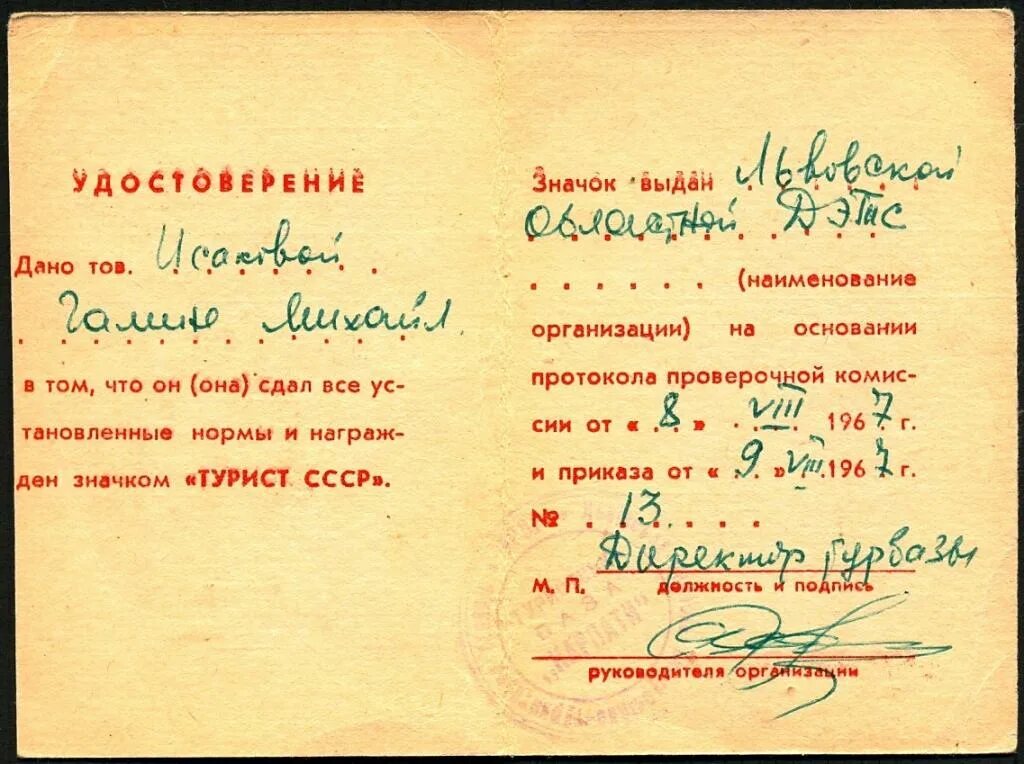 УДОСТОВЕРЕНИЕ
Дано тов. Исаковой
Галине Михайл.
в том, что он (она) сдал все ус-
тановленные нормы и награж-
ден значком «ТУРИСТ СССР».
Значок выдан Львовской
областной ДЭТС
(наименование
организации) на основании
протокола проверочной комис-
сии от «8» VIII 1967 г.
и приказа от «9» VIII 1967 г.
№ 13
Директор турбазы
М. П. должность и подпись
руководителя организации
БАЗА
«КАРПАТЫ»